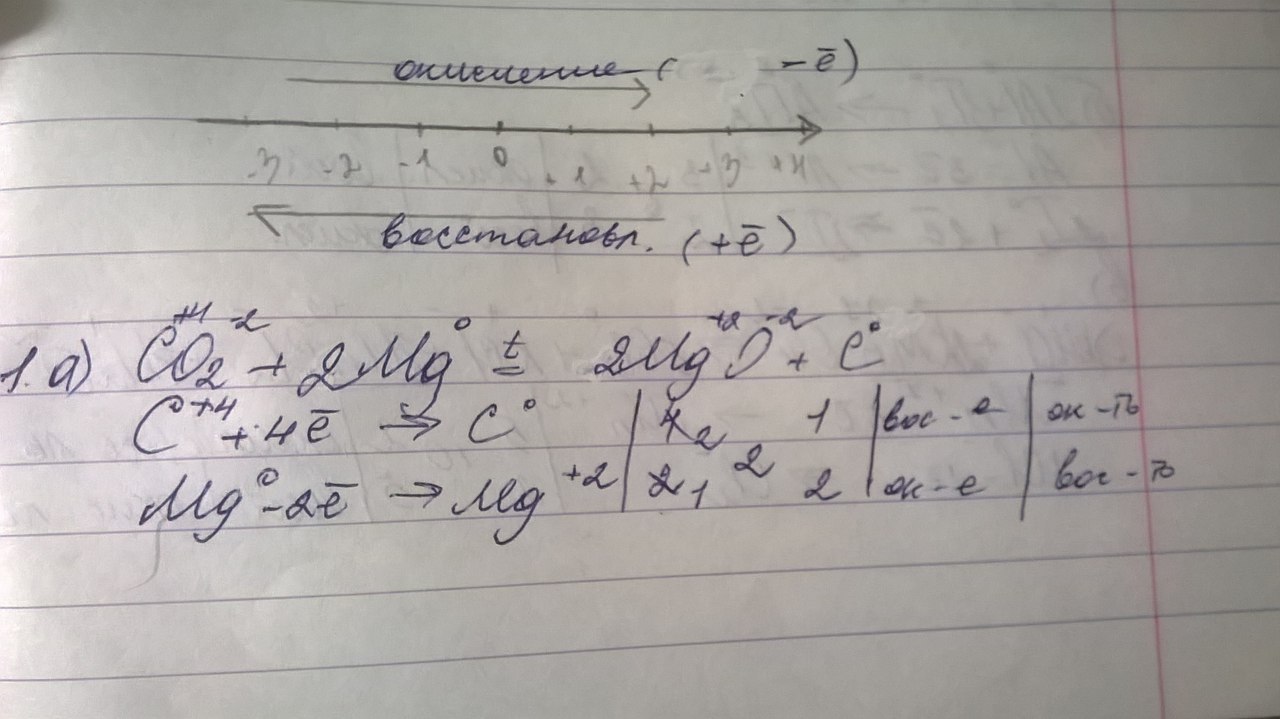 окисление ( - ē)
-3 -2 -1 0 +1 +2 +3 +4
восстановл. (+ē)
1. а) C⁺⁴O₂⁻² + 2Mg⁰ t= 2Mg⁺²O⁻² + C⁰
C⁺⁴ + 4ē → C⁰ | 4 2 1 | вос-е | ок-ль
Mg⁰ - 2ē → Mg⁺² | 2 1 2 2 | ок-е | вос-ль